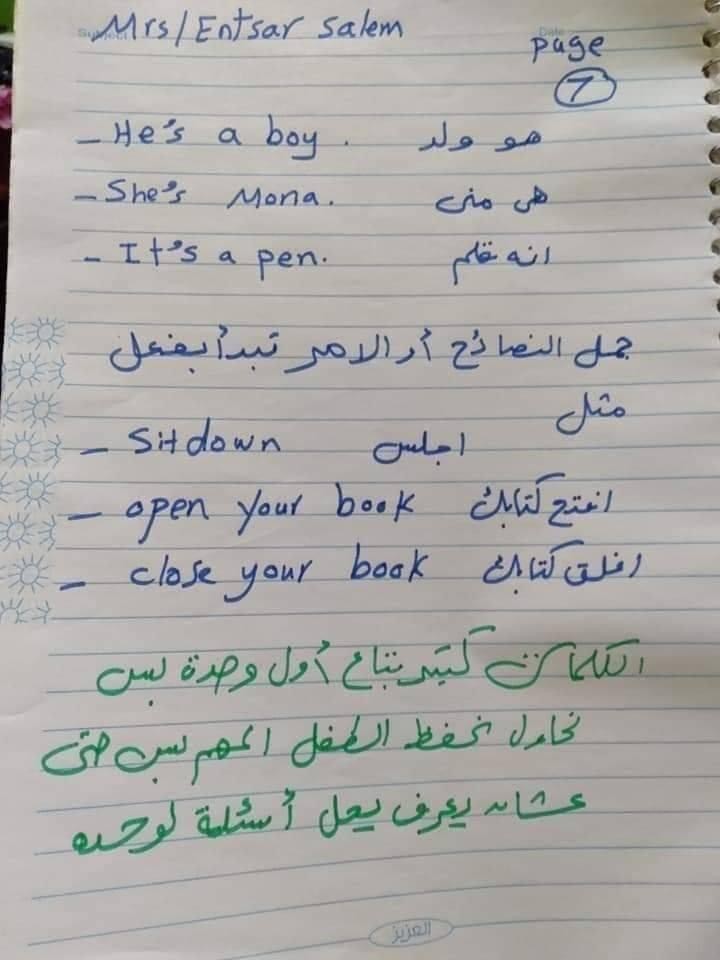 Mrs/Entsar Salem
Subject
Date
page
7
- He's a boy. هو ولد
- She's Mona. هى منى
- It's a pen. انه قلم
جمل النصائح أو الامر تبدأ بفعل
مثل
- Sit down اجلس
- open your book افتح كتابك
- close your book اغلق كتابك
الكلمات كتير بتاع أول وحدة بس
نحاول نحفظ الطفل المهم بس حتى
عشان يعرف يحل أسئلة لوحده
العزيز